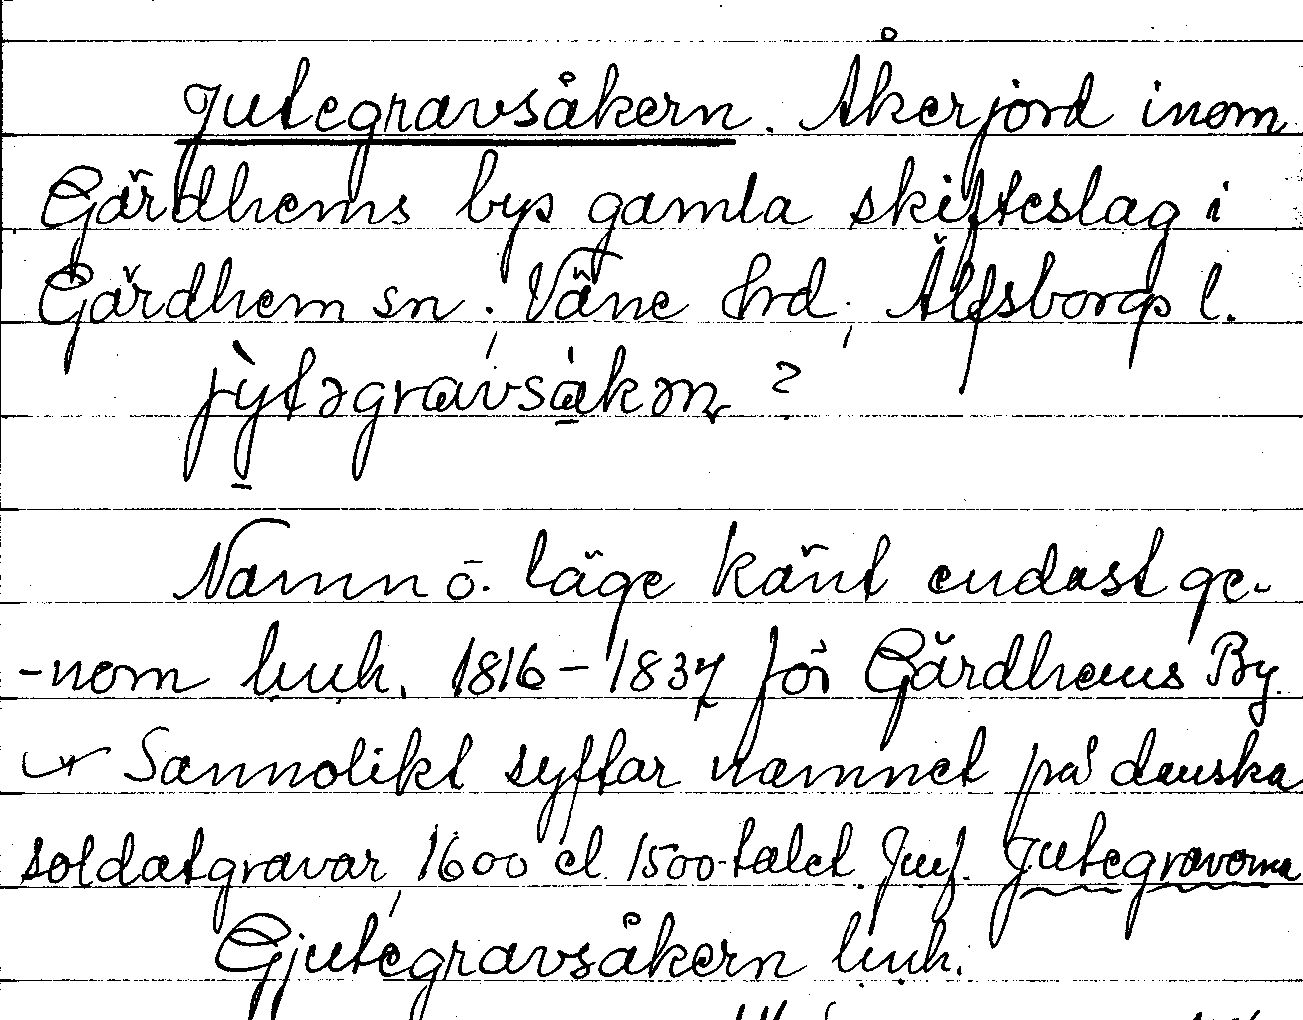 Jutegravsåkern. Åkerjord inom
Gärdhems bys gamla skifteslag i
Gärdhem sn, Väne hrd, Älfsborgs l.
jỳtəgravsåkən ?
Namn o. läge känt endast ge-
-nom huh. 1816-1837 för Gärdhems By.
Sannolikt syftar namnet på danska
soldatgravar, 1600 el. 1500-talet. Jmf. Jutegravarna
Gjutegravsåkern huh.